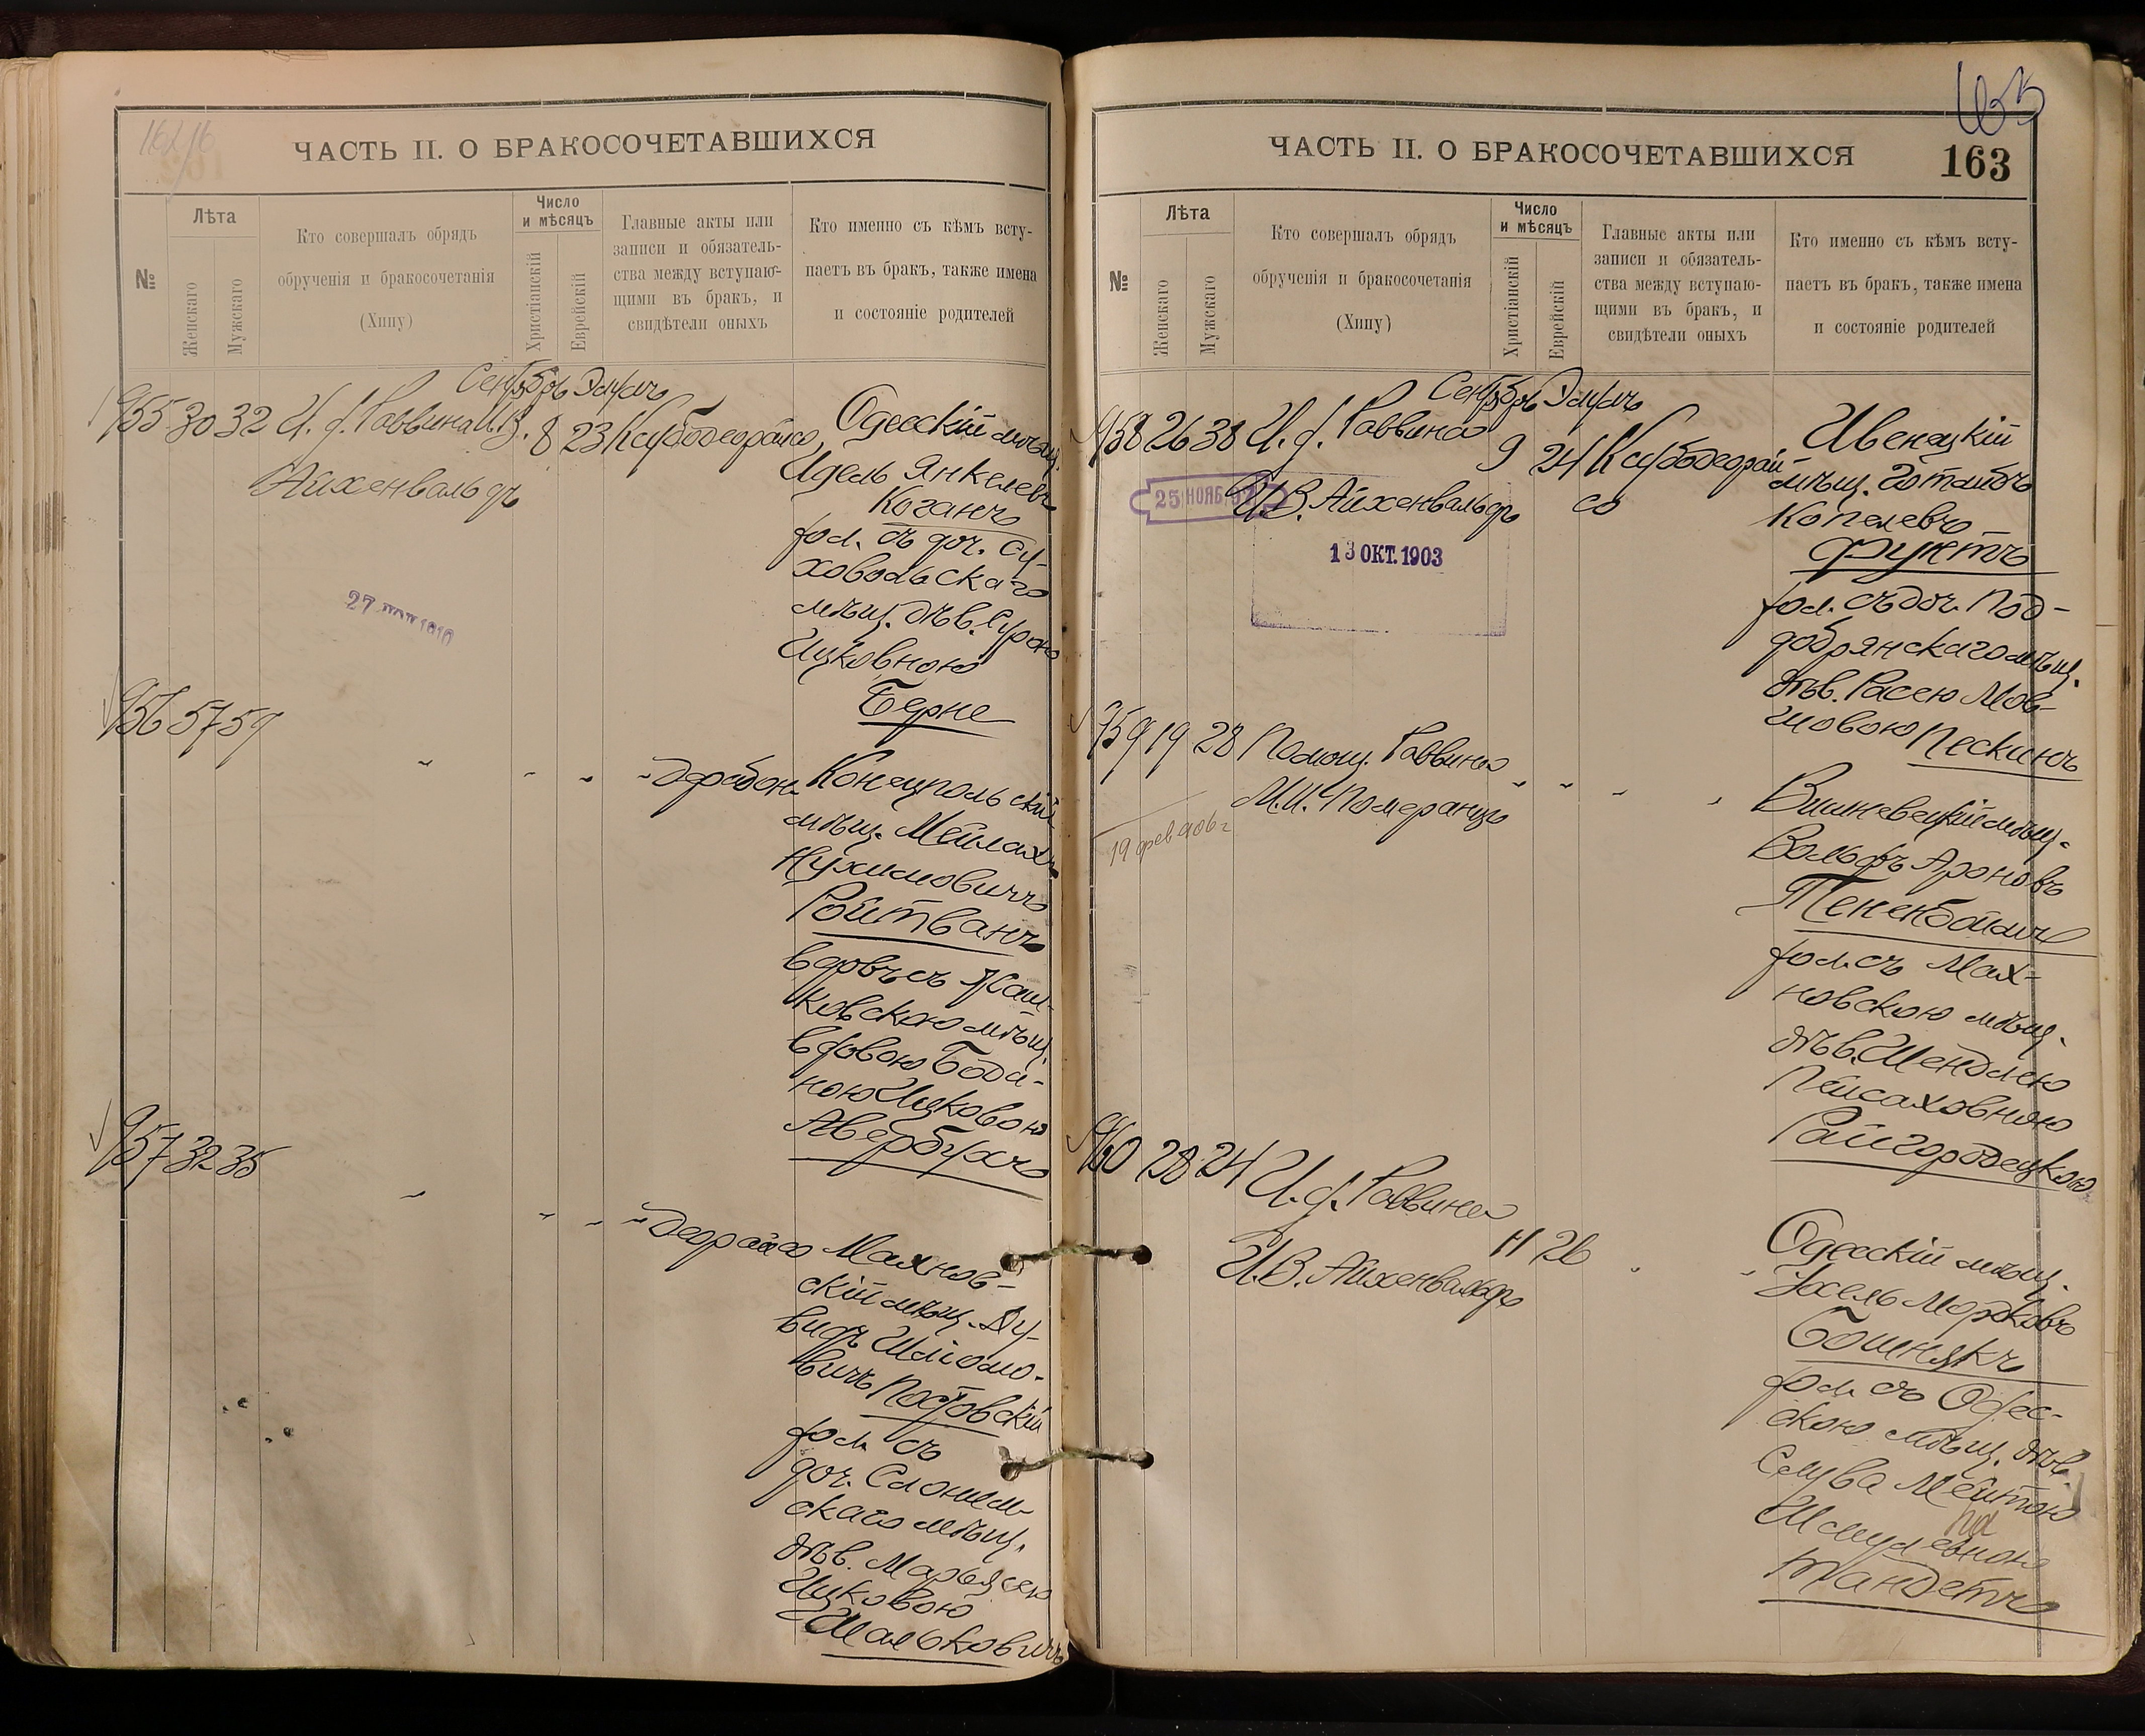 ЧАСТЬ II. О БРАКОСОЧЕТАВШИХСЯ
№
Лѣта
Женскаго
Мужскаго
Кто совершалъ обрядъ
обрученія и бракосочетанія
(Хипу)
Число
и мѣсяцъ
Христіанскій
Еврейскій
Главные акты или
записи и обязатель-
ства между вступаю-
щими въ бракъ, и
свидѣтели оныхъ
Кто именно съ кѣмъ всту-
паетъ въ бракъ, также имена
и состояніе родителей
Сентябрь Элулъ
955 30 32 И. д. Раввина И.В. 8 23
Айхенвальдъ
Одесскій мѣщ.
Идель Янкелевъ
Коганъ
хол. съ доч. Су-
ховольскаго
мѣщ. дѣв. Сурою
Ицковною
Берне
956 57 59
Конецпольскій
мѣщ. Мейлахъ
Нухимовичъ
Ройтванъ
вдовъ съ Каш-
ковскою мѣщ.
вдовою Боди-
ною Ицковою
Авербухъ
957 32 35
Махнов-
скій мѣщ. Ду-
видъ Шліомо-
вичъ Постовскій
хол. съ
доч. Слоним-
скаго мѣщ.
дѣв. Марьясею
Ицковою
Шальковичъ
ЧАСТЬ II. О БРАКОСОЧЕТАВШИХСЯ
163
№
Лѣта
Женскаго
Мужскаго
Кто совершалъ обрядъ
обрученія и бракосочетанія
(Хипу)
Число
и мѣсяцъ
Христіанскій
Еврейскій
Главные акты или
записи и обязатель-
ства между вступаю-
щими въ бракъ, и
свидѣтели оныхъ
Кто именно съ кѣмъ всту-
паетъ въ бракъ, также имена
и состояніе родителей
Сентябрь Элулъ
958 26 38 И. д. Раввина 9 24
И.В. Айхенвальдъ
25 НОЯБ
13 ОКТ. 1903
Ивенецкій
мѣщ. Готлибъ
Копелевъ
Фуктъ
хол. съ доч. Под-
добрянскаго мѣщ.
дѣв. Расею Мов-
шовою Пескинъ
959 19 28 Помощ. Раввина
М.И. Померанцъ
19 фев 906 г
Вишневецкій мѣщ.
Вольфъ Ароновъ
Тененбаймъ
хол. съ Мах-
новскою мѣщ.
дѣв. Шендлею
Пейсаховною
Райгородецкою
960 28 24 И. д. Раввина 11 26
И.В. Айхенвальдъ
Одесскій мѣщ.
Хаскель Мордковъ
Бошнякъ
хол. съ Одес-
скою мѣщ. дѣв.
Слува Мейтою
Шмулевною
Тандетъ